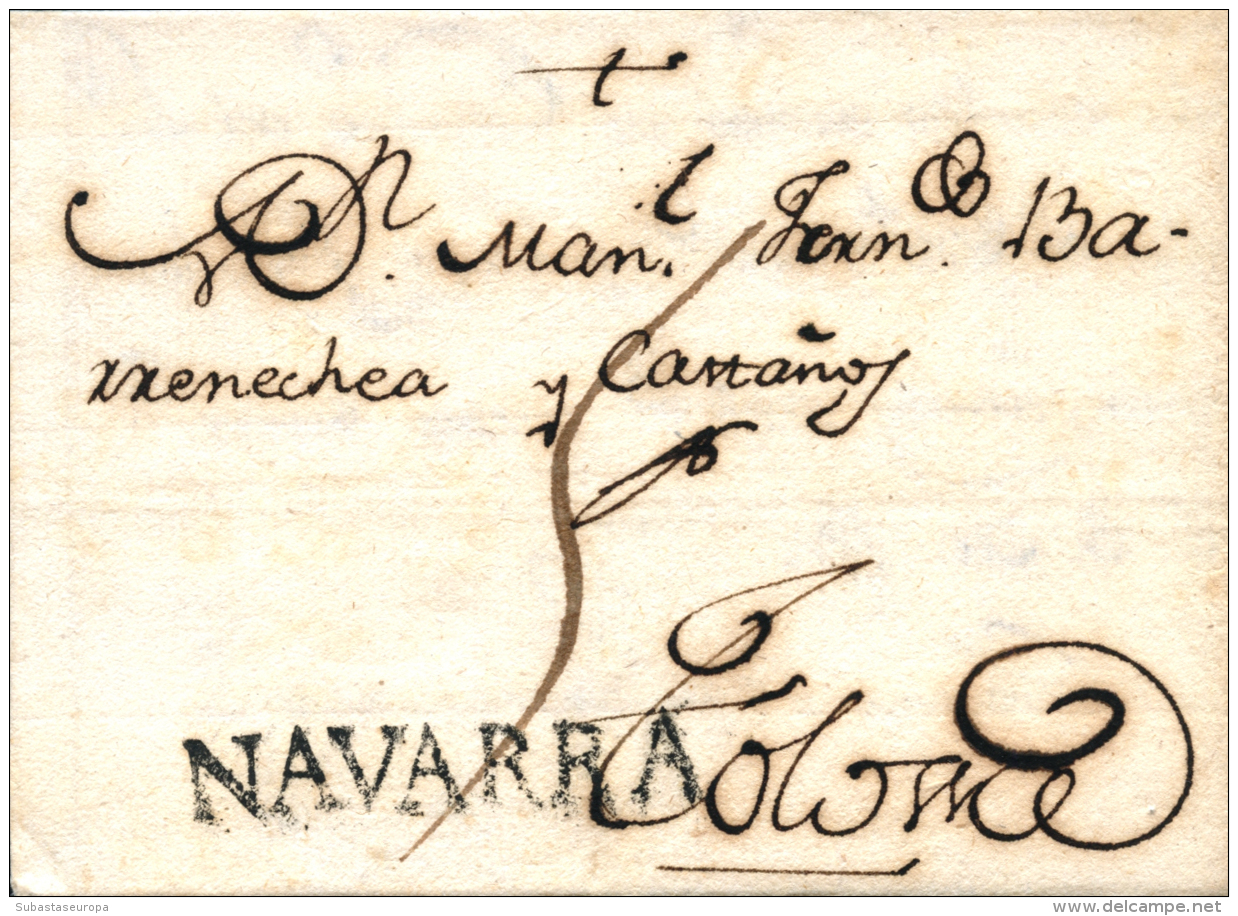 +
Dn. Man.l Fern.do Ba-
rrenechea y Casttaños
NAVARRA
Tolosa
Subastaseuropa
delcampe.net